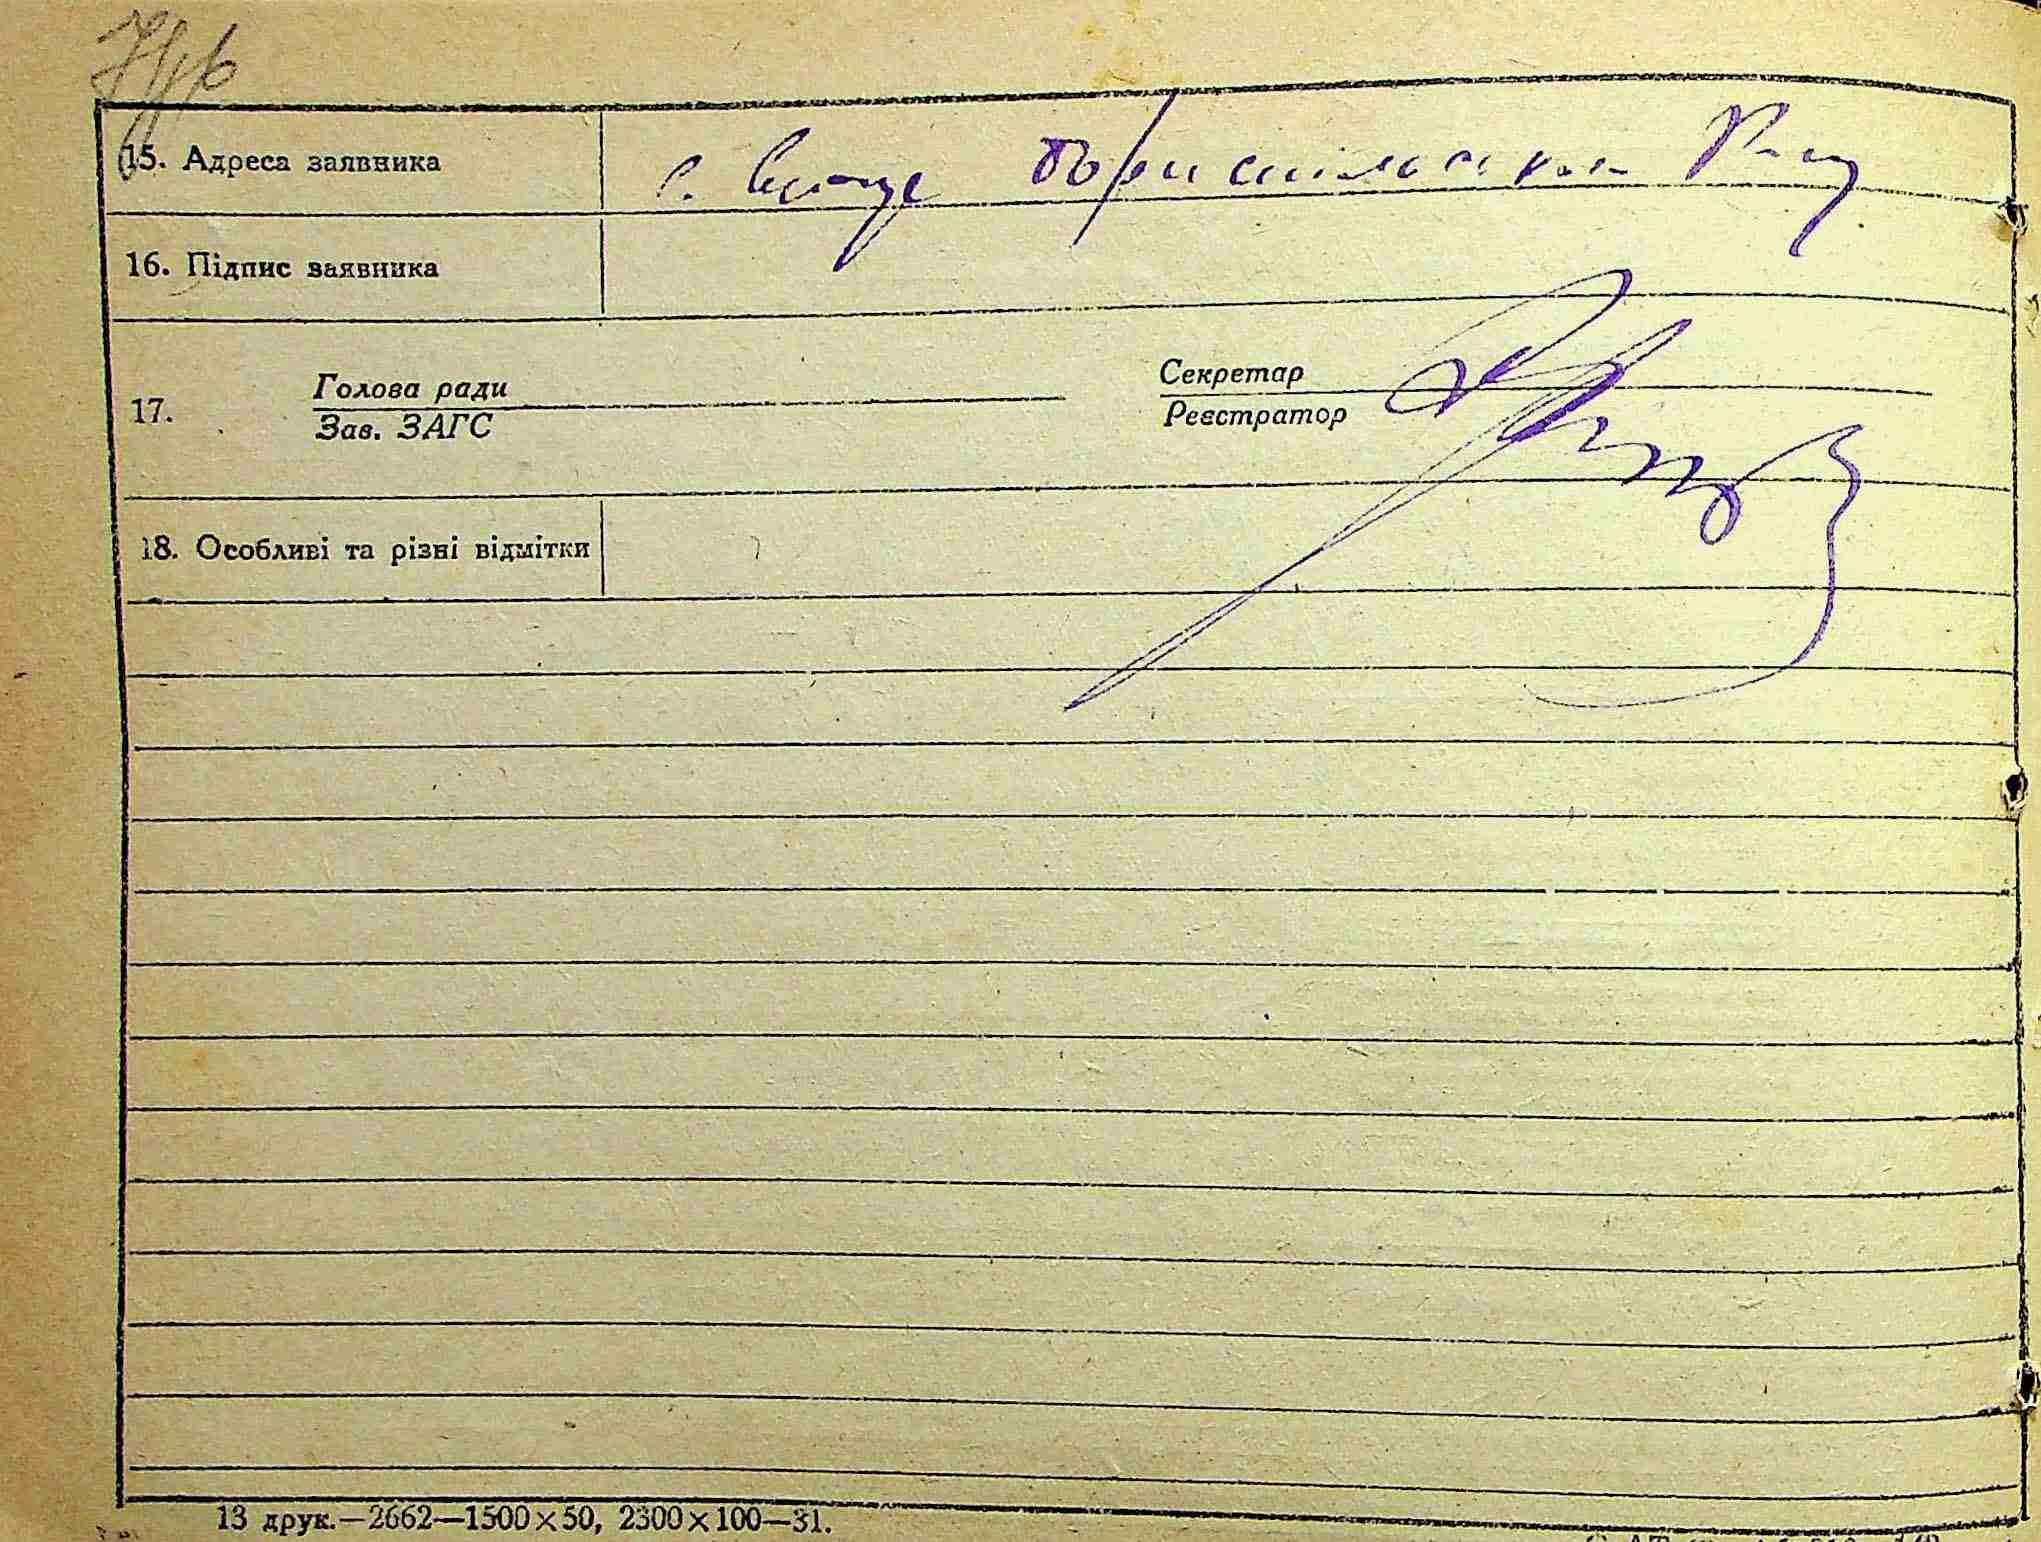 15. Адреса заявника с. Бориспільський
16. Підпис заявника
Голова ради Секретар
17.
Зав. ЗАГС Реєстратор
18. Особливі та різні відмітки
13 друк.—2662—1500×50, 2300×100—31.